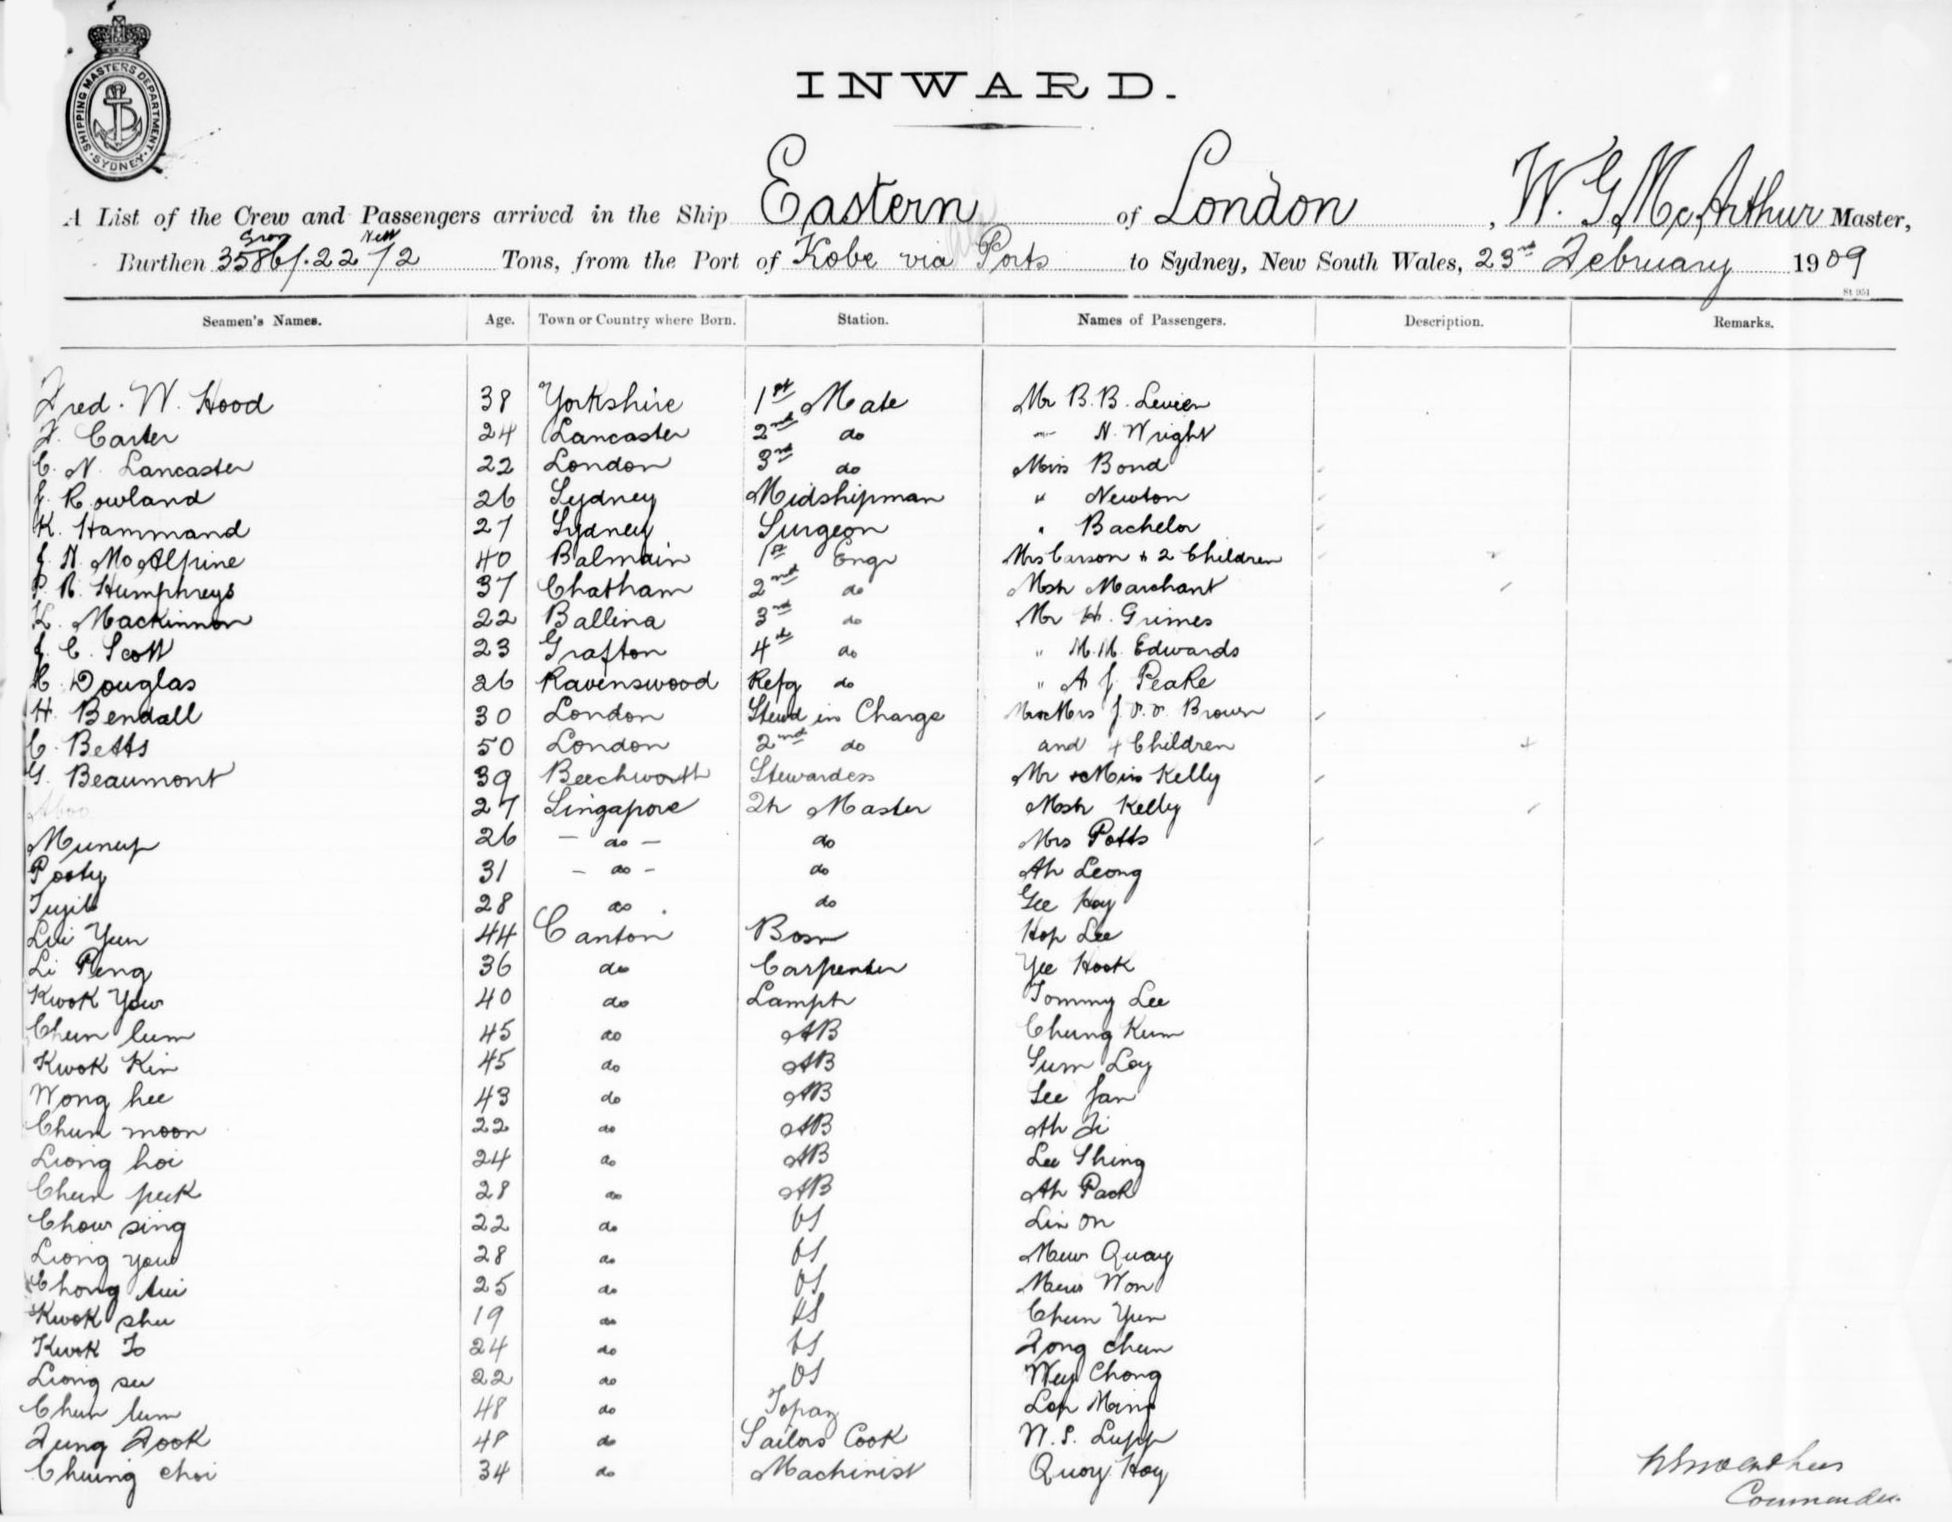 SHIPPING MASTERS DEPARTMENT
SYDNEY
INWARD.
A List of the Crew and Passengers arrived in the Ship Eastern of London, W. G. McArthur Master,
Gross Nett
Burthen 3586/.2272 Tons, from the Port of Kobe via Ports to Sydney, New South Wales, 23rd February 1909
St 951
Seamen's Names. Age. Town or Country where Born. Station. Names of Passengers. Description. Remarks.
Fred. W. Hood 38 Yorkshire 1st Mate Mr B. B. Levien
F. Carter 24 Lancaster 2nd do " N. Wright
C. N. Lancaster 22 London 3rd do Miss Bond
J. Rowland 26 Sydney Midshipman " Newton
K. Hammand 27 Sydney Surgeon " Bachelor
J. N. McAlpine 40 Balmain 1st Engr Mrs Carson & 2 Children
P. R. Humphreys 37 Chatham 2nd do Mstr Marchant
K. Mackinnon 22 Ballina 3rd do Mr H. Grimes
J. C. Scott 23 Grafton 4th do " M. M. Edwards
H. Douglas 26 Ravenswood Refg do " A J. Peake
H. Bendall 30 London Stewd in Charge Mr & Mrs J. Brown
C. Betts 50 London 2nd do and 4 Children
G. Beaumont 39 Beechworth Stewardess Mr & Miss Kelly
Aboo 27 Singapore Qr Master Mstr Kelly
Munup 26 - do - do Mrs Potts
Pooty 31 - do - do Ah Leong
Tujib 28 do do Gee Hoy
Lui Yun 44 Canton Bosn Hop Lee
Li Peng 36 do Carpenter Yee Hook
Kwok Yow 40 do Lamptr Tommy Lee
Chun lum 45 do AB Chung Kum
Kwok Kin 45 do AB Sum Loy
Wong hee 43 do AB See Jan
Chun moon 22 do AB Ah Fi
Liong hoi 24 do AB Lee Shing
Chun puk 28 do AB Ah Pack
Chow sing 22 do OS Lin On
Liong you 28 do OS Mew Quay
Chong tui 25 do OS Mew Won
Kwok shu 19 do OS Chun Yun
Kwok To 24 do OS Fong chun
Liong su 22 do OS Wey Chong
Chun lum 48 do Topaz Lop Ming
Fung Fook 48 do Sailors Cook W. S. Lupp
Chung choi 34 do Machinist Quoy Hoy
Commander